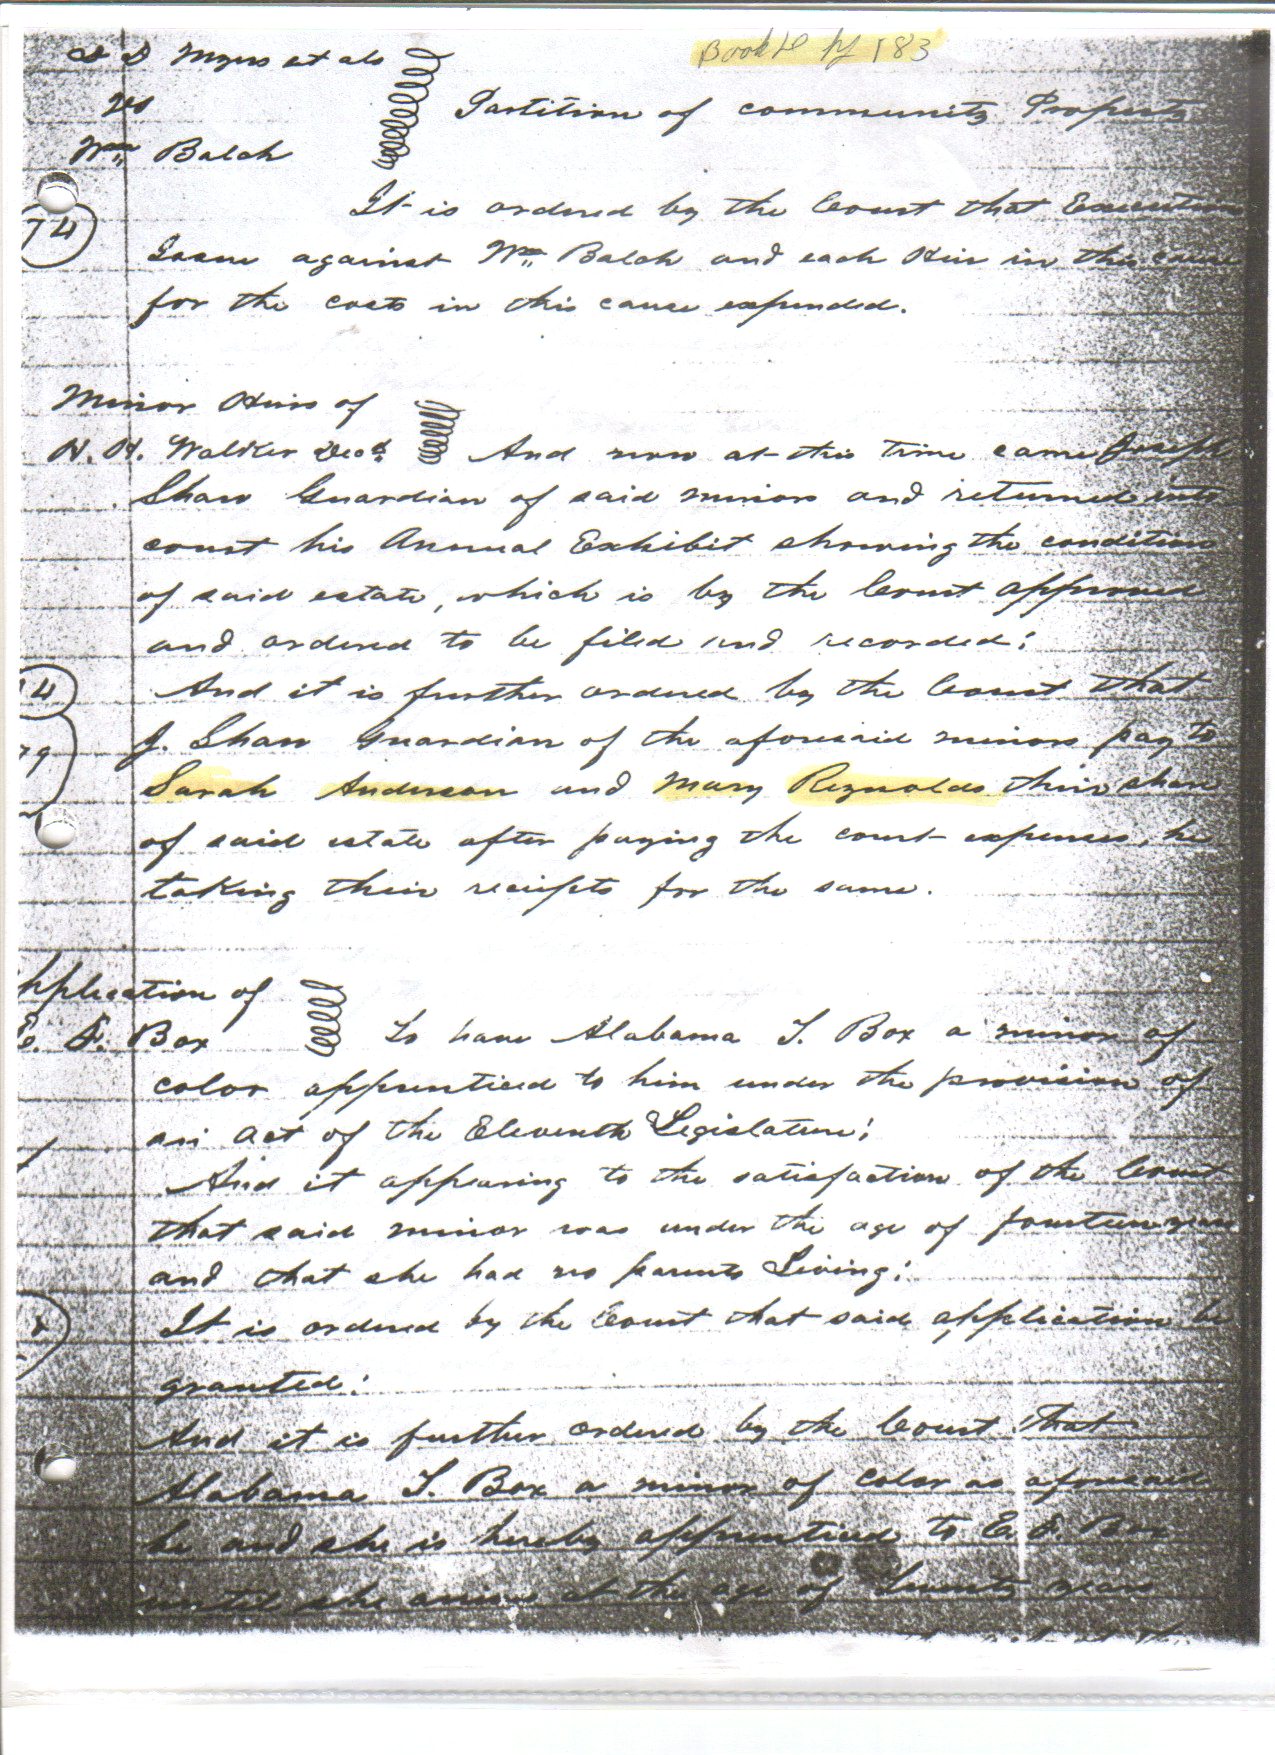 Book D pg 183
S D Myers et als
vs
Wm Balch
Partition of community Property
It is ordered by the Court that Execution
Issue against Wm Balch and each Heir in this cause
for the costs in this cause expended.
74
Minor Heirs of
H. H. Walker Decd And now at this time came Joseph
Shaw Guardian of said minors and returned into
court his Annual Exhibit showing the condition
of said estate, which is by the Court approved
and ordered to be filed and recorded;
And it is further ordered by the Court that
J. Shaw Guardian of the aforesaid minors pay to
Sarah Anderson and Mary Reynolds their share
of said estate after paying the court expenses, he
taking their receipts for the same.
Application of
E. F. Box To have Alabama T. Box a minor of
color apprenticed to him under the provision of
an Act of the Eleventh Legislature;
And it appearing to the satisfaction of the Court
that said minor was under the age of fourteen years
and that she had no parents Living;
It is ordered by the Court that said application be
granted;
And it is further ordered by the Court that
Alabama T. Box a minor of color as aforesaid
be and she is hereby apprenticed to E. F. Box
until she arrive at the age of Twenty years